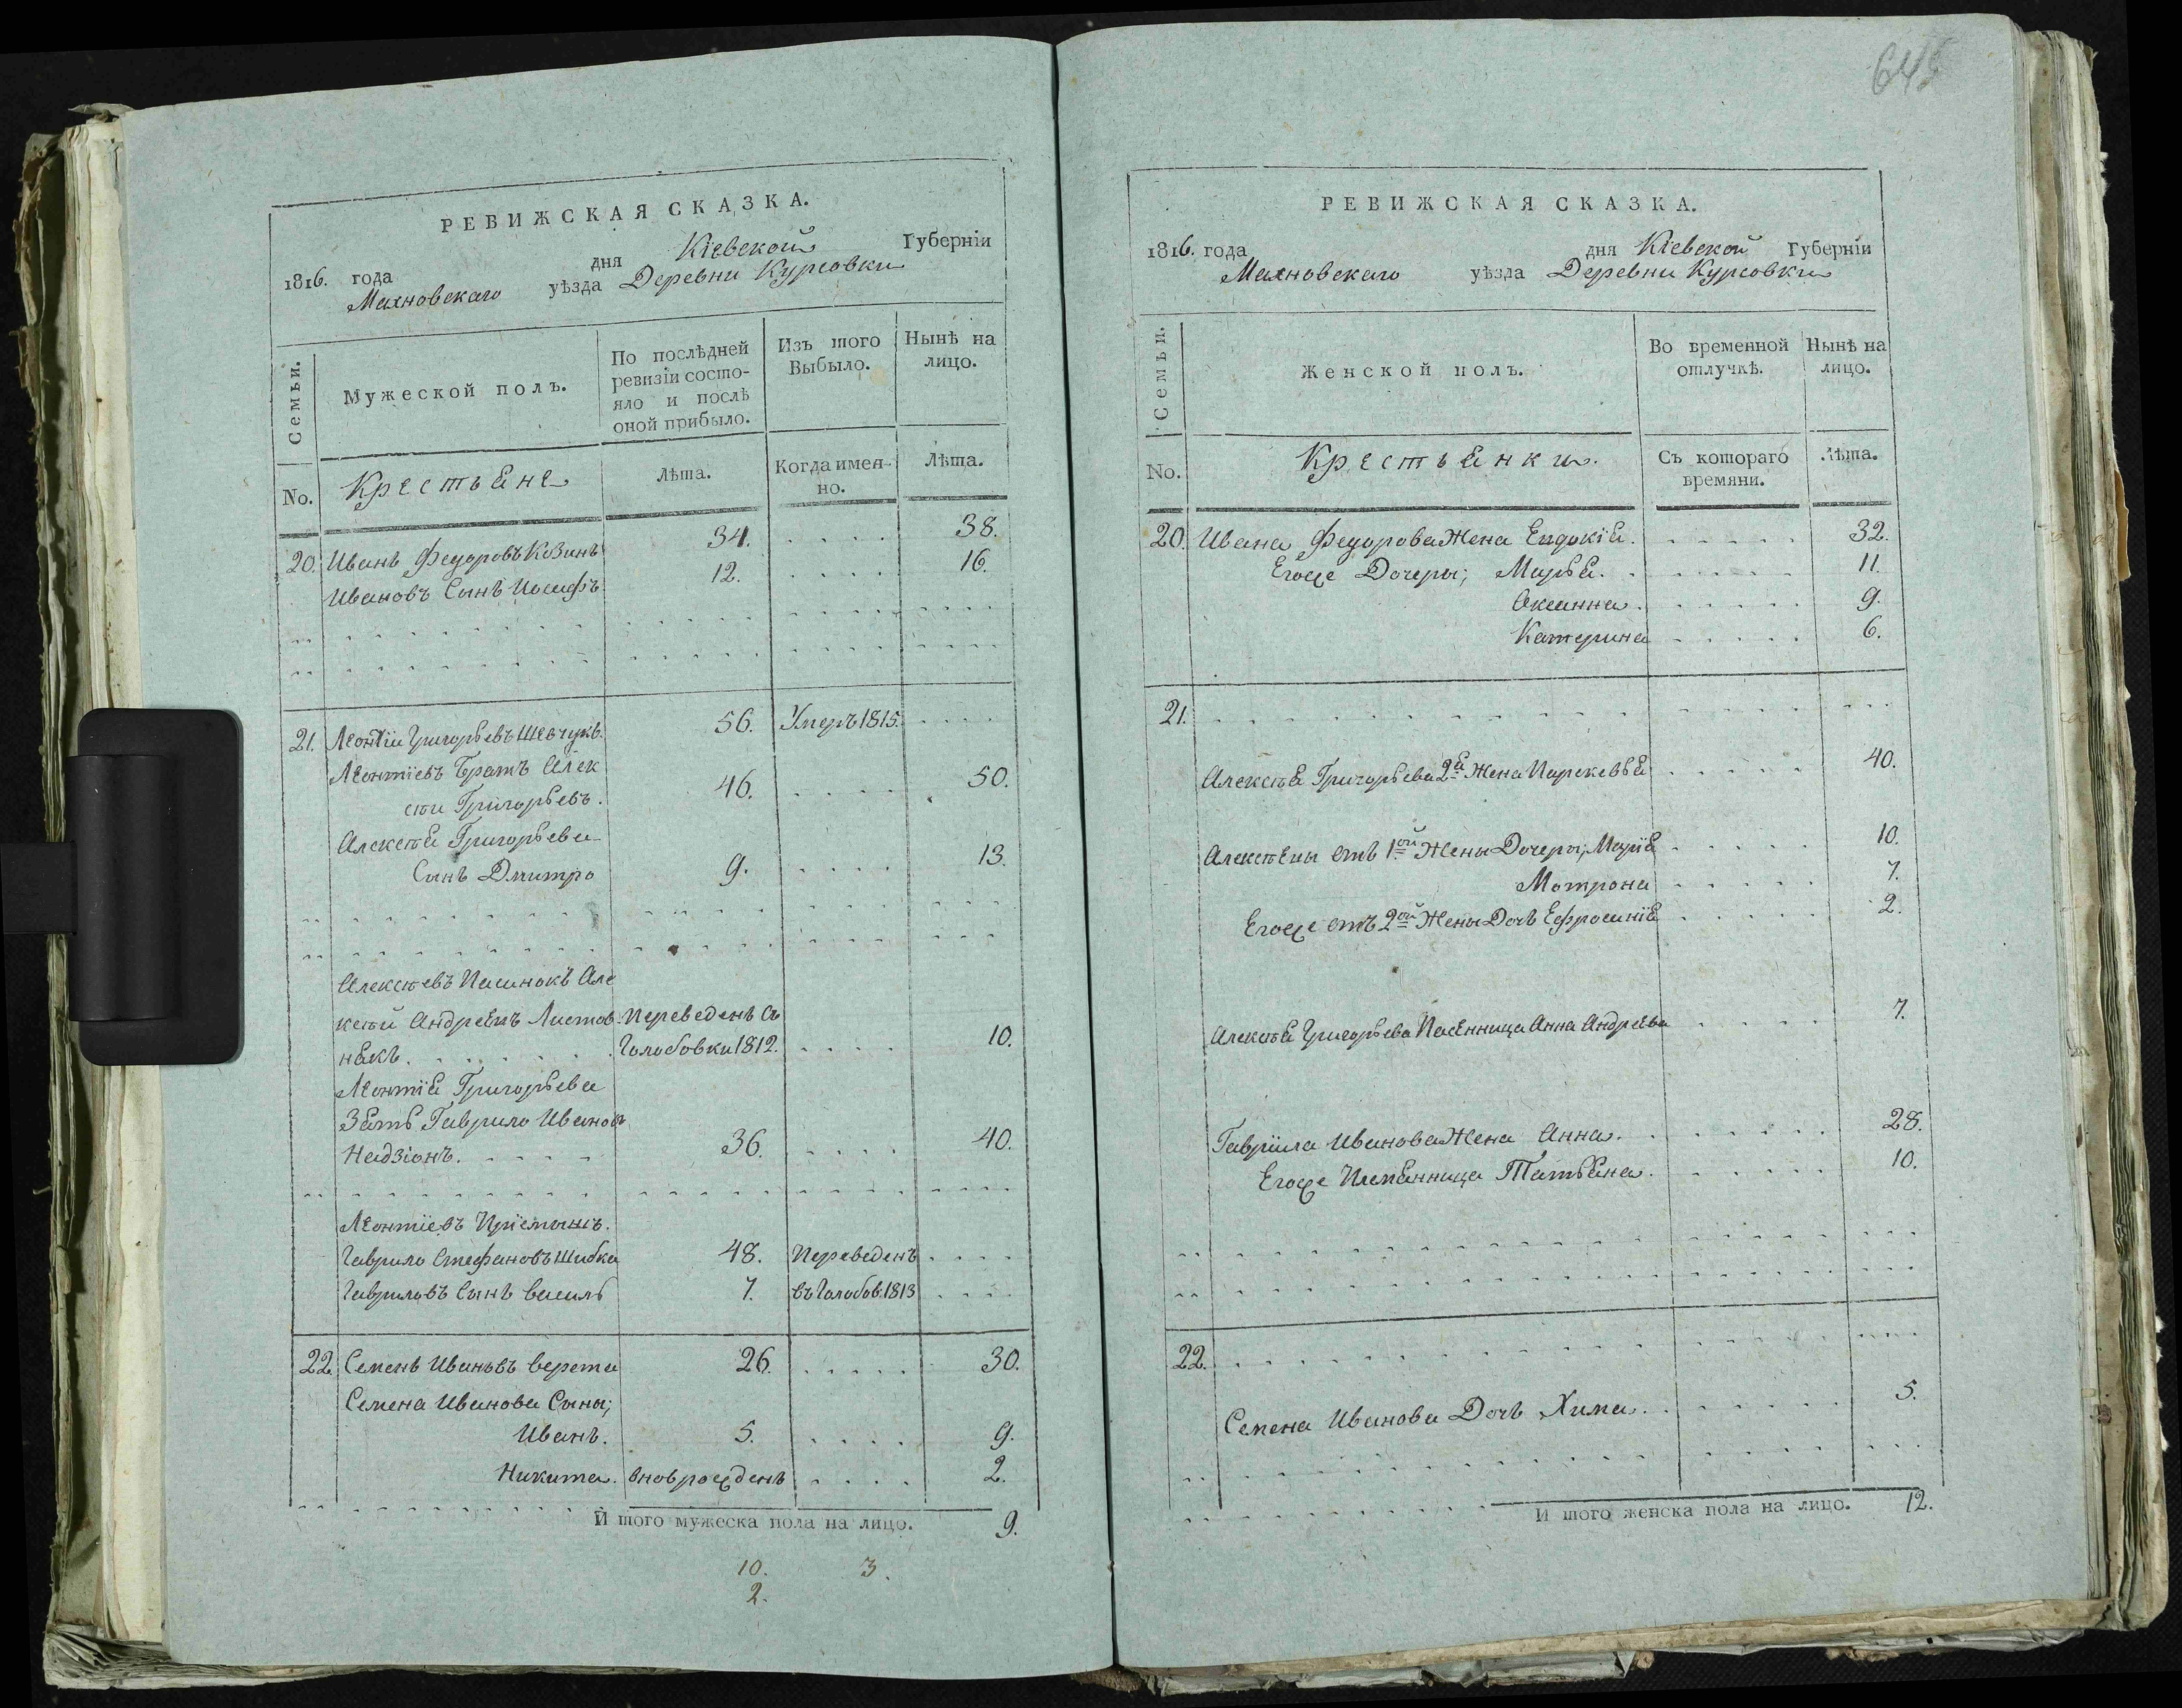 645
РЕВИЖСКАЯ СКАЗКА.
1816. года дня Кіевской Губерніи
Махновскаго уѣзда Деревни Курсовки
Семьи.
Мужеской полъ.
По послѣдней ревизіи состо-
яло и послѣ оной прибыло.
Изъ того Выбыло.
Нынѣ на лицо.
No.
Крестьяне
Лѣта.
Когда имен-
но.
Лѣта.
20. Иванъ Федоровъ Козинъ 34. 38.
Ивановъ Сынъ Иосифъ 12. 16.
21. Леонтіи Григорьевъ Шевчукъ. 56. Умеръ 1815.
Леонтіевъ Братъ Алек
сѣи Григорьевъ. 46. 50.
Алексѣя Григорьева
Сынъ Дмитро 9. 13.
Алексѣевъ Пасинокъ Але
ксѣй Андреявъ Листов- Переведенъ съ
някъ. Голобовки 1812. 10.
Леонтія Григорьева
Зять Гаврило Ивановъ
Надзіонъ. 36. 40.
Леонтіевъ Пріемышъ.
Гаврило Стефановъ Шибка 48. Переведенъ
Гавриловъ Сынъ василь 7. въ Голобов. 1813
22. Семенъ Ивановъ верета 26. 30.
Семена Иванова Сыны;
Иванъ. 5. 9.
Никита. вновь рожденъ 2.
И того мужеска пола на лицо. 9.
10. 3.
2.
РЕВИЖСКАЯ СКАЗКА.
1816. года дня Кіевской Губерніи
Махновскаго уѣзда Деревни Курсовки
Семьи.
Женской полъ.
Во временной отлучкѣ.
Нынѣ на лицо.
No.
Крестьянки.
Съ котораго времяни.
Лѣта.
20. Ивана Федорова Жена Евдокія. 32.
Егоже Дочеры; Марья. 11.
Оксанна. 9.
Катерина 6.
21.
Алексѣя Григорьева 2я Жена Парскевья 40.
Алексѣевы отъ 1ой Жены Дочеры; Марія 10.
Мотрона 7.
Егоже отъ 2ой Жены Дочь Ефросинія 2.
Алексѣя Григорьева Пасенница Анна Андреева 7.
Гавріила Иванова Жена Анна. 28.
Егоже Племянница Татьяна. 10.
22.
Семена Иванова Дочь Хима. 5.
И того женска пола на лицо. 12.